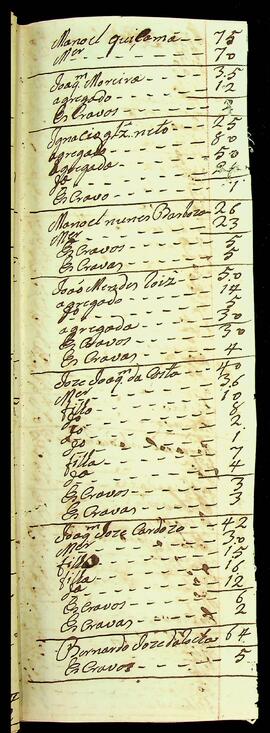 Manoel quilama - - 75
Mer - - - - 70
Joaqm Moreira - - 35
agregado - - - 12
esCravos - - - 2
Ignacio glz neto - - 25
agregado - - - 80
agregada - - - 50
Da - - - -
esCravo - - - 1
Manoel nunes Barboza 26
Mer - - - - 23
esCravos - - - 5
esCravas - - - 5
João Mendes - - 50
agregado - - - 14
Do - - - - 5
agregada - - - 30
esCravos - - - 30
esCravas - - - 4
Joze Joaqm da Costa - 40
Mer - - - - 36
fillo - - - - 10
Do - - - - 8
Do - - - - 2
Do - - - - 1
filla - - - - 7
Da - - - - 4
esCravos - - - 3
esCravas - - - 3
Joaqm Joze Cardozo - 42
Mer - - - - 30
fillo - - - - 15
filla - - - - 16
Da - - - - 12
esCravos - - - 6
esCravas - - - 2
Bernardo Joze 64
esCravos - - - 5